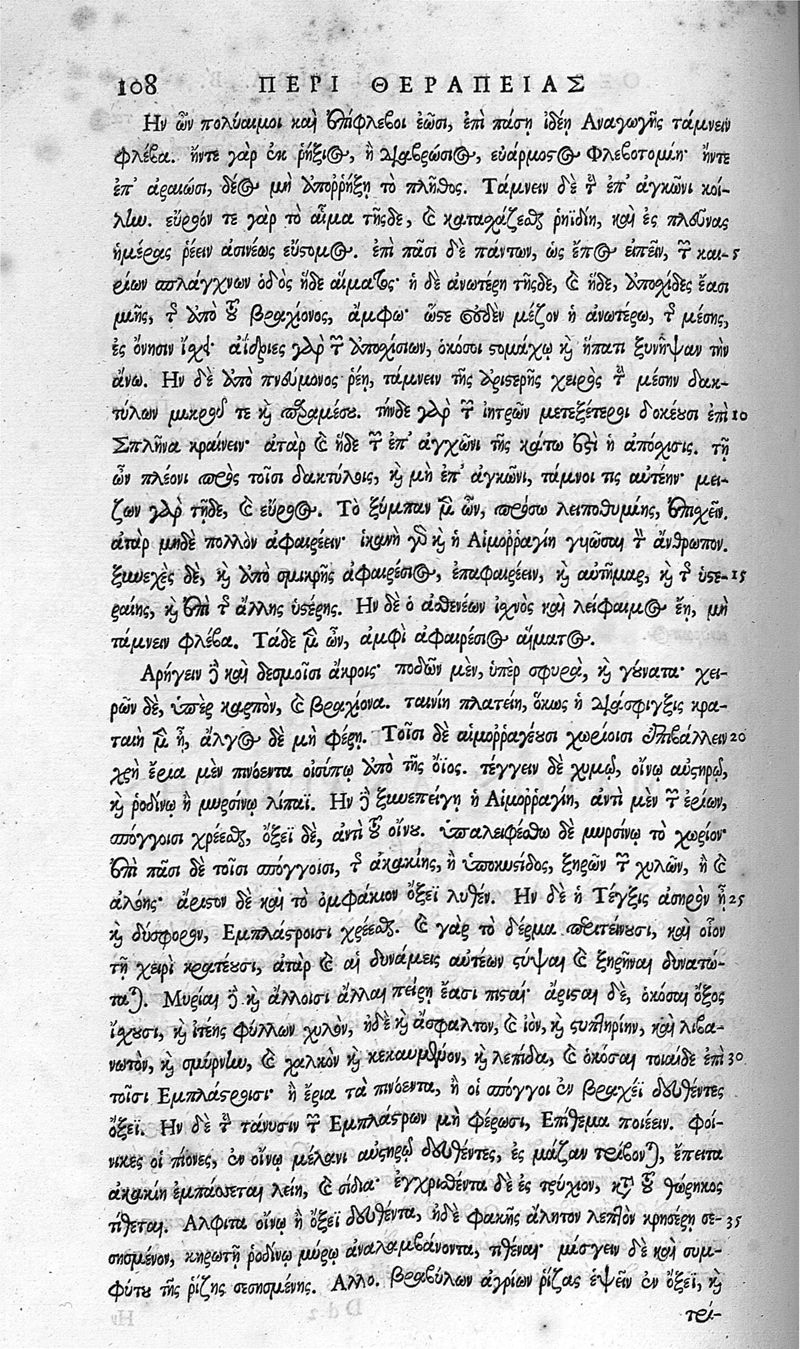 108 ΠΕΡΙ ΘΕΡΑΠΕΙΑΣ
Ην ὦν πολύαιμοι καὶ ἐπίφλεβοι ἔωσι, ἐπὶ πάσῃ ἰδέῃ Αναγωγῆς τάμνειν
φλέβα. ἤντε γὰρ ἐκ ῥήξιος, ἢ διαβρώσιος, εὐάρμοστος Φλεβοτομίη· ἤντε
ἐπ' ἀραιώσι, δέος μὴ ὑποῤῥήξῃ τὸ πλῆθος. Τάμνειν δὲ τὴν ἐπ' ἀγκῶνι κοί-
λην. εὔροόν τε γὰρ τὸ αἷμα τῆσδε, καὶ κατασχάζεσθαι ῥηϊδίη, καὶ ἐς πλεῦνας
ἡμέρας ῥέειν ἀσινέως εὔστομος. ἐπὶ πᾶσι δὲ πάντων, ὡς ἔπος εἰπεῖν, τῶν και- 5
ρίων σπλάγχνων ὁδὸς ἥδε αἵματος· ἡ δὲ ἀνωτέρη τῆσδε, καὶ ἥδε, ὑποσχίδες ἔασι
μιῆς, τῆς ὑπὸ τοῦ βραχίονος, ἄμφω· ὥστε οὐδὲν μέζον ἡ ἀνωτέρω, τῆς μέσης,
ἐς ὄνησιν ἴσχει· ἀΐδριες γὰρ τῶν ὑποσχίσιων, ὁκόσοι στομάχῳ καὶ ἥπατι ξυνῆψαν τὴν
ἄνω. Ην δὲ ἀπὸ πνεύμονος ῥέῃ, τάμνειν τῆς ἀριστερῆς χειρὸς τὴν μέσην δακ-
τύλων μικροῦ τε καὶ παραμέσου. τήνδε γὰρ τῶν ἰητρῶν μετεξέτεροι δοκέουσι ἐπὶ 10
Σπλῆνα κραίνειν· ἀτὰρ καὶ ἥδε τῶν ἐπ' ἀγκῶνι τῆς κάτω ἐστὶ ἡ ἀπόσχισις. τῇ
ὦν πλέονι πρὸς τοῖσι δακτύλοις, καὶ μὴ ἐπ' ἀγκῶνι, τάμνοι τις αὐτέην· μεί-
ζων γὰρ τῇδε, καὶ εὔροος. Τὸ ξύμπαν μὲν ὦν, πρόσω λειποθυμίης, ἐπισχεῖν.
ἀτὰρ μηδὲ πολλὸν ἀφαιρέειν· ἱκανὴ γὰρ καὶ ἡ Αἱμοῤῥαγίη γυιῶσαι τὸν ἄνθρωπον.
ξυνεχὲς δὲ, καὶ ἀπὸ σμικρῆς ἀφαιρέσιος, ἐπαφαιρέειν, καὶ αὐτῆμαρ, καὶ τῆς ὑστε- 15
ραίης, καὶ ἐπὶ τῆς ἄλλης ὑστέρης. Ην δὲ ὁ ἀσθενέων ἰσχνὸς καὶ λείφαιμος ἔῃ, μὴ
τάμνειν φλέβα. Τάδε μὲν ὦν, ἀμφὶ ἀφαιρέσιος αἵματος.
Αρήγειν δὲ καὶ δεσμοῖσι ἄκροις· ποδῶν μὲν, ὑπὲρ σφυρὰ, καὶ γούνατα· χει-
ρῶν δὲ, ὑπὲρ καρπὸν, καὶ βραχίονα. ταινίη πλατείη, ὅκως ἡ διάσφιγξις κρα-
ταιὴ μὲν ᾖ, ἄλγος δὲ μὴ φέρῃ. Τοῖσι δὲ αἱμοῤῥαγέουσι χωρίοισι ἐπιβάλλειν 20
χρὴ ἔρια μὲν πινόεντα οἰσύπῳ ἀπὸ τῆς ὄϊος. τέγγειν δὲ χυμῷ, οἴνῳ αὐστηρῷ,
καὶ ῥοδίνῳ ἢ μυρσίνῳ λίπαϊ. Ην δὲ ξυνεπείγῃ ἡ Αἱμοῤῥαγίη, ἀντὶ μὲν τῶν ἐρίων,
σπόγγοισι χρέεσθαι, ὄξεϊ δὲ, ἀντὶ τοῦ οἴνου. ὑπαλειφέσθω δὲ μυρσίνῳ τὸ χωρίον·
ἐπὶ πᾶσι δὲ τοῖσι σπόγγοισι, τῆς ἀκακίης, ἢ ὑποκυστίδος, ξηρῶν τῶν χυλῶν, ἢ καὶ
ἀλόης· ἄριστον δὲ καὶ τὸ ὀμφάκιον ὄξεϊ λυθέν. Ην δὲ ἡ Τέγξις ἀσηρὸν ᾖ 25
καὶ δύσφορον, Εμπλάστροισι χρέεσθαι. καὶ γὰρ τὸ δέρμα περιτείνουσι, καὶ οἷον
τῇ χειρὶ κρατέουσι, ἀτὰρ καὶ αἱ δυνάμεις αὐτέων στύψαι καὶ ξηρῆναι δυνατώ-
ταται. Μυρίαι δὲ καὶ ἄλλοισι ἄλλαι πείρῃ ἔασι πισταί· ἄρισται δὲ, ὁκόσαι ὄξος
ἴσχουσι, καὶ ἰτέης φύλλων χυλὸν, ἠδὲ καὶ ἄσφαλτον, καὶ ἰὸν, καὶ στυπτηρίην, καὶ λιβα-
νωτὸν, καὶ σμύρνην, καὶ χαλκὸν καὶ κεκαυμένον, καὶ λεπίδα, καὶ ὁκόσαι τοιαίδε ἐπὶ 30
τοῖσι Εμπλάστροισι· ἢ ἔρια τὰ πινόεντα, ἢ οἱ σπόγγοι ἐν βραχεῖ δευθέντες
ὄξεϊ. Ην δὲ τὴν τάνυσιν τῶν Εμπλάστρων μὴ φέρωσι, Επίθεμα ποιέειν. Φοί-
νικες οἱ πίονες, ἐν οἴνῳ μέλανι αὐστηρῷ δευθέντες, ἐς μᾶζαν τρίβονται, ἔπειτα
ἀκακίη ἐμπάσσεται λείη, καὶ σίδια· ἐγχρισθέντα δὲ ἐς τρύχιον, κατὰ τοῦ θώρηκος
τίθεται. Αλφιτα οἴνῳ ἢ ὄξεϊ δευθέντα, ἠδὲ φακῆς ἄλητον λεπτὸν κρησέρῃ σε- 35
σησμένον, κηρωτῇ ῥοδίνῳ μύρῳ ἀναλαμβάνοντα, τιθέναι· μίσγειν δὲ καὶ συμ-
φύτου τῆς ῥίζης σεσησμένης. Αλλο. βραβύλων ἀγρίων ῥίζας ἑψεῖν ἐν ὄξεϊ, καὶ
τρί-